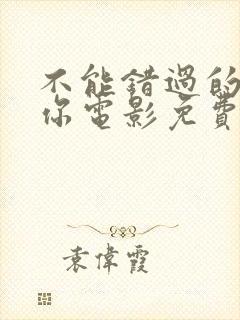 不能错過的
你電影免費
袁偉霞